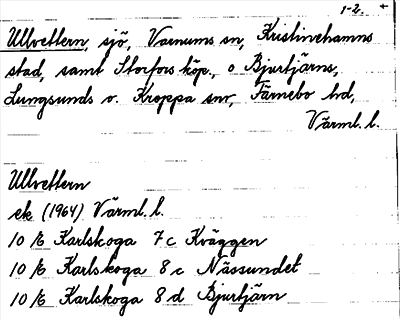 1-2.
Ullvettern, sjö, Varnums sn, Kristinehamns
stad, samt Storfors köp., o Bjurtjärns,
Lungsunds o. Kroppa snr, Färnebo hd,
Värml. l.
Ullvettern
ek (1964) Värml. l.
10/6 Karlskoga 7c Kväggen
10/6 Karlskoga 8c Nässundet
10/6 Karlskoga 8d Bjurtjärn